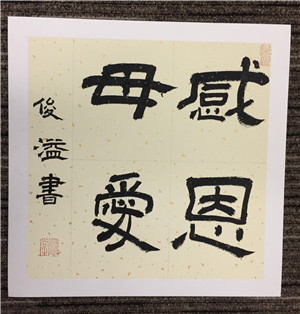 感恩
母愛
俊溢書